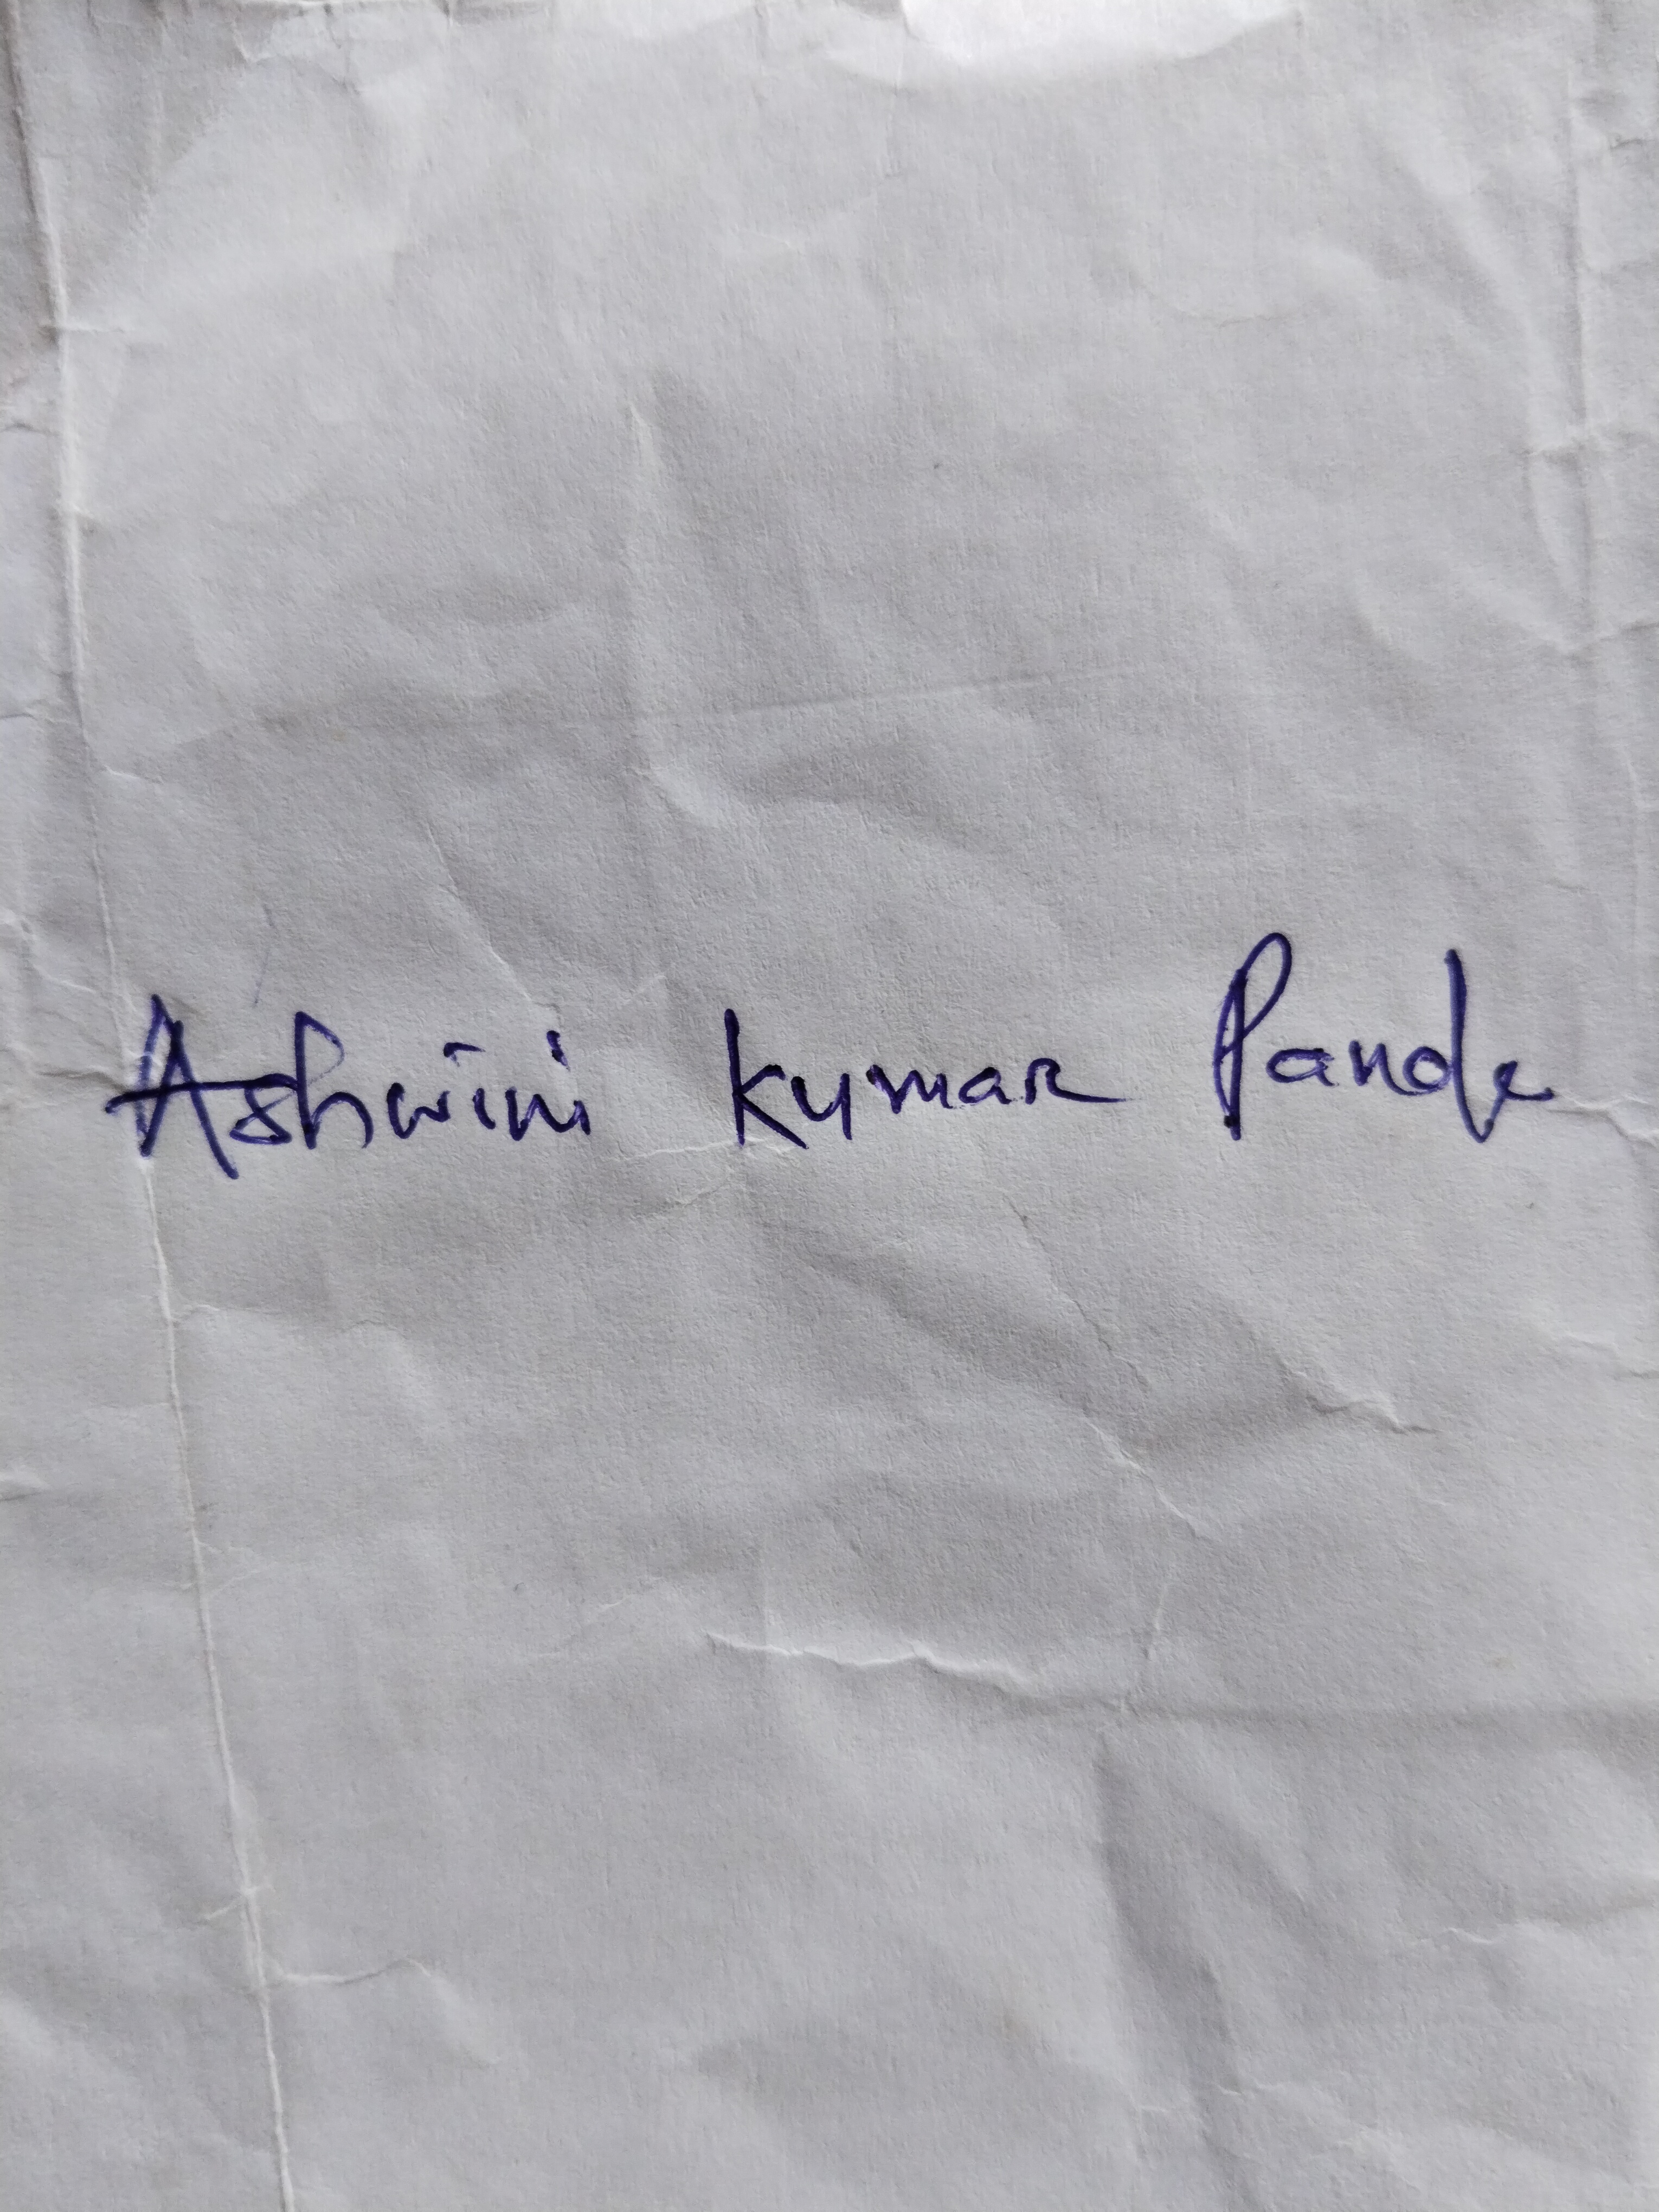 Ashwini Kumar Pande